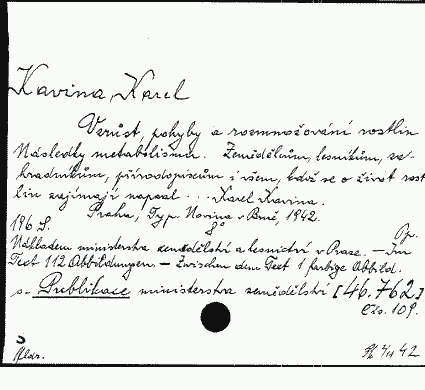 Kavina, Karel
Vzrůst, pohyby a rozmnožování rostlin
Následky metabolismu. Zemědělcům, lesníkům, za-
hradníkům, přírodopiscům i všem, kdož se o život rost-
lin zajímají napsal ... Karel Kavina.
Praha, Typ. Novina v Brně, 1942.
196 S. 8° Pp.
Nákladem ministerstva zemědělství a lesnictví v Praze. — Im
Text 112 Abbildungen — Zwischen dem Text 1 farbige Abbild.
s- Publikace ministerstva zemědělství [46.762]
Čís. 109.
42